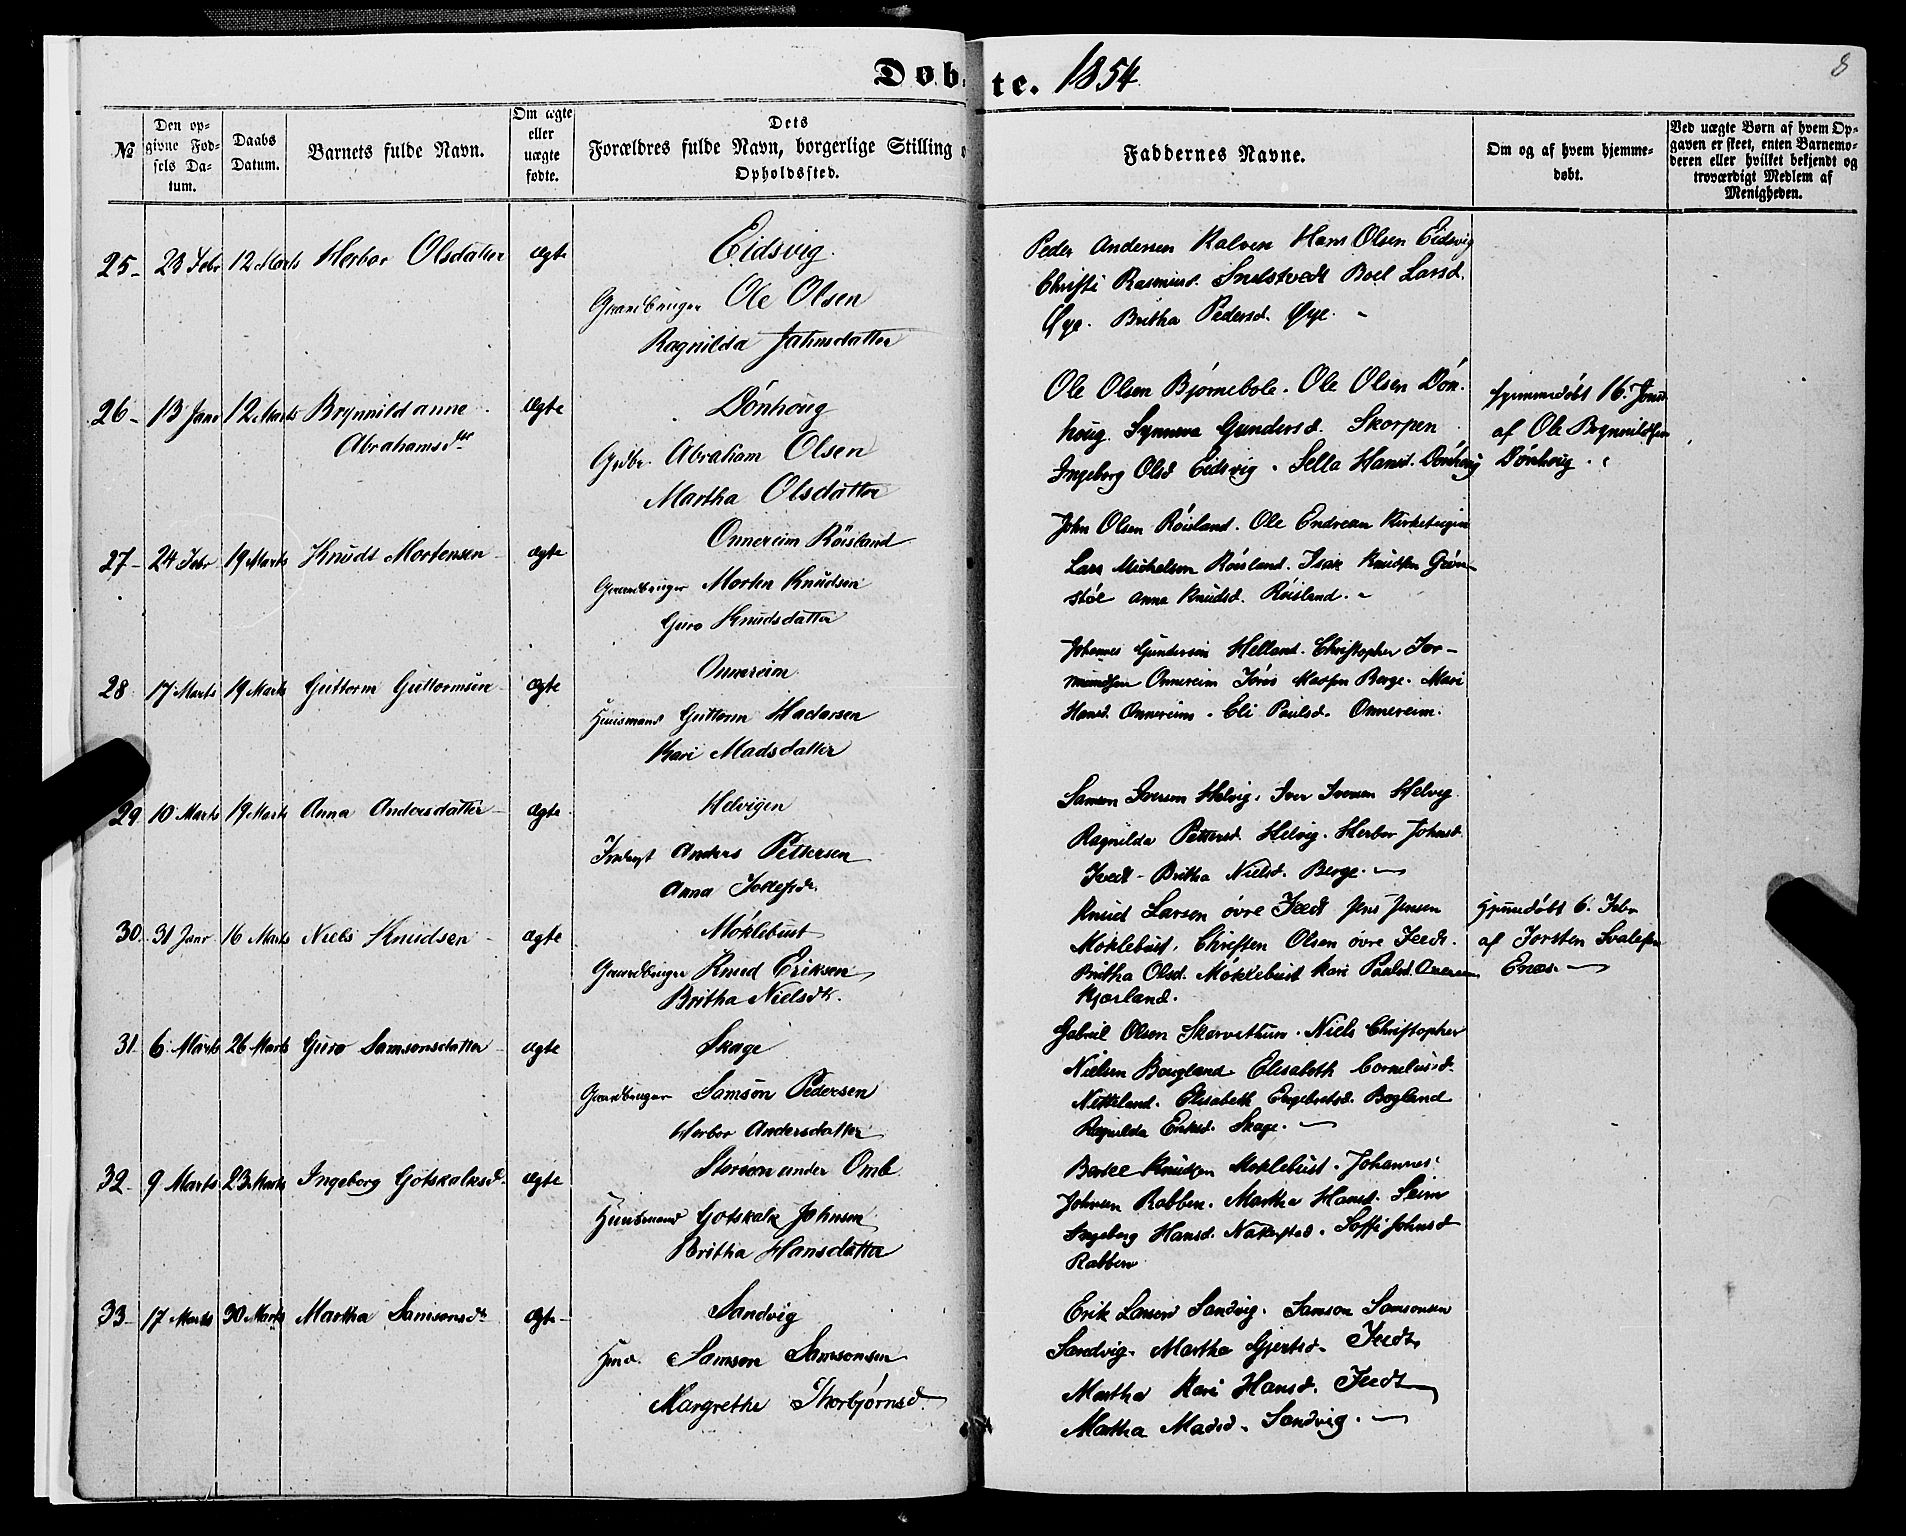 Døbte. 1854
8
№
Den opgivne Fødsels Datum.
Daabs Datum.
Barnets fulde Navn.
Om ægte eller uægte fødte.
Dets Forældres fulde Navn, borgerlige Stilling o Opholdssted.
Faddernes Navne.
Om og af hvem hjemmedøbt.
Ved uægte Børn af hvem Opgaven er skeet, enten Barnemoderen eller hvilket bekjendt og troværdigt Medlem af Menigheden.
25- 23 Febr 12 Marts Herbor Olsdatter ægte Eidsvig.
Gaardbruger Ole Olsen
Ragnilda Johnsdatter
Peder Andersen Kalven Hans Olsen Eidsvig
Christi Rasmusd. Boel Larsd.
Øye. Britha Pedersd. Øye.
26- 13 Janr 12 Marts Brynnild anne ægte Dónhoug
Abrahamsdtr
Grdbr. Abraham Olsen
Martha Olsdatter
Ole Olsen Bjørnebole. Ole Olsen Dón-
houg. Synneva Gundersd. Skorpen
Ingeborg Olsd Eidsvig. Sella Hansd. Dónhoug
hjemmedøbt 16. Janr
af Ole Brynnildsen
Dónhoug.
27- 24 Febr 19 Marts Knudt Mortensen ægte Onnereim Róisland
Gaardbruger Morten Knudsen
Guro Knudsdatter
John Olsen Róisland. Ole Endresen
Lars Michelsen Róisland. Isak Knudsen Grón-
stól anna Knudsd. Róisland.
28 17 Marts 19 Marts Guttorm Guttormsen ægte Onnereim
Huusmand Guttorm Hadorsen
Kari Madsdatter
Johannes Gundersen Helland. Christopher Tor-
mundsen Onnereim Berge. Mari
Hansd. Onnereim. Eli Paulsd. Onnereim.
29 10 Marts 19 Marts Anna Andersdatter ægte Helvigen
Inderst Anders Pettersen
Anna
Samson Iversen Helvig. Iver Iversen Helvig
Ragnilda Pettersd. Helvig. Herbor Johnsd.
Tvedt - Britha Nielsd. Berge.
30. 31 Janr 16 Marts Niels Knudsen ægte Móklebust
Gaardbruger Knud Eriksen
Britha Nielsdtr.
Knud Larsen óvre Tvedt Jens Jensen
Moklebust. Christen Olsen óvre Tvedt.
Britha Olsd. Móklebust Kari Paulsd.
Kjærland.
Hjemmedøbt 6. Febr
af Torsten
Enæs.
31 6 Marts 26 Marts Guro Samsonsdatter ægte Skage
Gaardbruger Samson Pedersen
Herbor Andersdatter
Gabriel Olsen Skorvethun. Niels Christopher
Nielsen Bougland. Elisabeth Corneliusd.
Netteland. Elisabeth Engebretsd. Bogland
Ragnilda Eriksd. Skage.
32- 9 Marts 23 Marts Ingeborg Gotskalksd. ægte under Ombe
Huusmand Gotskalk Johnsen
Britha Hansdatter
Knudsen Moklebust. Johannes
Johnsen Rabben. Martha Hansd. Seim
Ingeborg Hansd. Soffi Johnsd
Rabben
33- 17 Marts 30 Marts Martha Samsonsdtr ægte Sandvig
Hmd. Samson Samsonsen
Margrethe Thorbjørnsd
Erik Larsen Sandvig. Samson Samsonsen
Sandvig. Martha Gjertsd. Tvedt
Martha Kari Hansd. Tvedt
Martha Madsd. Sandvig.